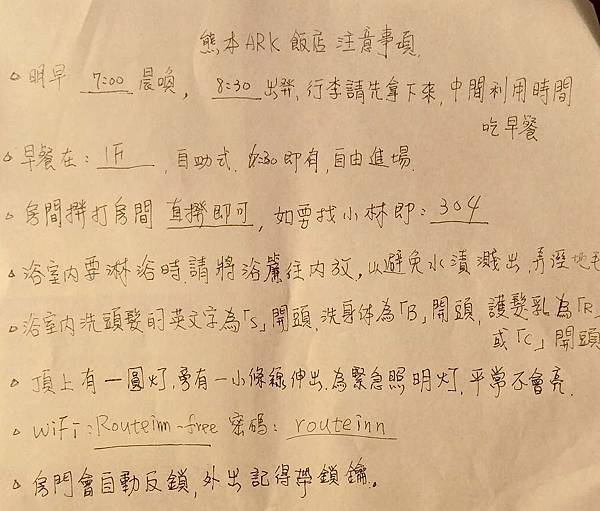 熊本ARK 飯店 注意事項.
△明早 7:00 晨喚, 8:30 出発, 行李請先拿下來, 中間利用時間
吃早餐
△早餐在: 1F, 自助式. 6:30 即有, 自由進場.
△房間撥打房間 直撥即可, 如要找小林即: 304
△浴室內要淋浴時, 請將浴簾往內放, 以避免水漬濺出, 弄溼地毛
△浴室內洗頭髮的英文字為「S」開頭, 洗身体為「B」開頭, 護髮乳為「R」
或「C」開頭
△頂上有一圓灯, 旁有一小條線伸出, 為緊急照明灯, 平常不會亮.
△WiFi: Routeinn-free 密碼: routeinn
△房門會自動反鎖, 外出記得帶鎖鑰。